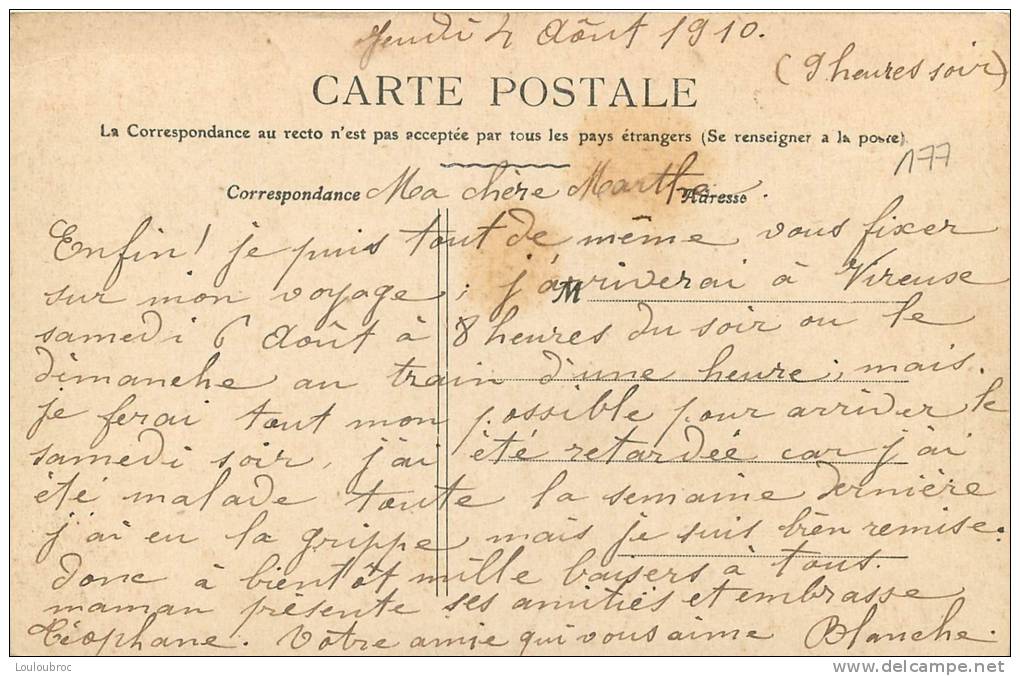 Jeudi 4 Août 1910.
(9 heures soir)
CARTE POSTALE
La Correspondance au recto n'est pas acceptée par tous les pays étrangers (Se renseigner a la poste)
177
Correspondance Ma chère Marthe. Adresse
Enfin! je puis tout de même vous fixer
sur mon voyage; j'arriverai à Vireuse
M
samedi 6 Août à 8 heures du soir ou le
dimanche au train d'une heure, mais.
je ferai tout mon possible pour arriver le
samedi soir, j'ai été retardée car j'ai
été malade toute la semaine dernière
j'ai eu la grippe mais je suis bien remise.
donc à bientôt mille baisers à tous.
maman présente ses amitiés et embrasse
Téophane. Votre amie qui vous aime Blanche.
Louloubroc
www.delcampe.net